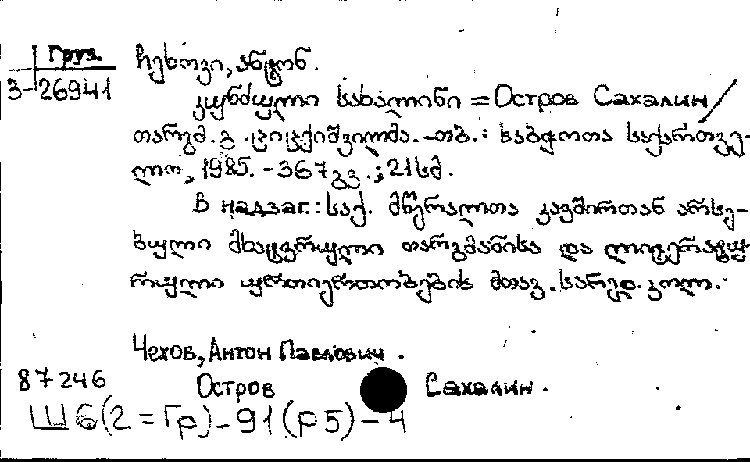 Груз.
3-26941
ჩეხოვი, ანტონ.
კუნძული სახალინი = Остров Сахалин /
თარგმ. გ. ციციქიშვილმა. - თბ. : საბჭოთა საქართვე-
ლო, 1985. - 367 გვ. ; 21 სმ.
В надзаг.: საქ. მწერალთა კავშირთან არსე-
ბული მხატვრული თარგმანისა და ლიტერატუ-
რული ურთიერთობების მთავ. სარედ. კოლ.
Чехов, Антон Павлович.
87246 Остров Сахалин.
Ш6(2=Гр)-91(Р5)-4